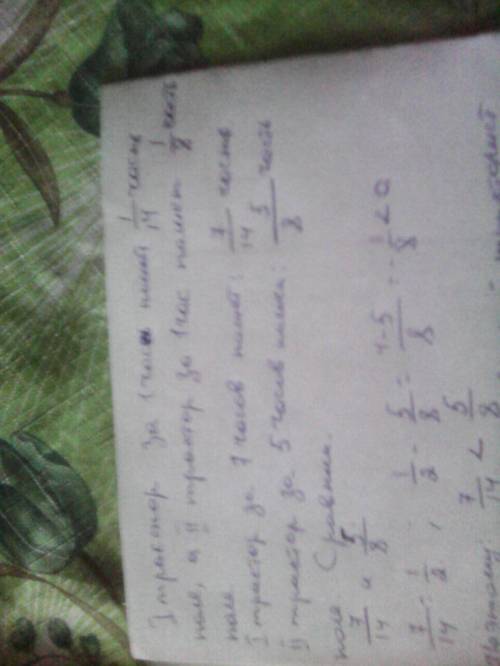 I трактор за 1 час пашет 1/14 часть
поля, а II трактор за 1 час пашет 1/8 часть
поля
I трактор за 7 часов пашет: 7/14 части
II трактор за 5 часов пашет: 5/8 часть
поля. Сравним.
7/14 и 5/8
7/14 = 1/2, 1/2 - 5/8 = 4-5/8 = -1/8 < 0
7/14 < 5/8